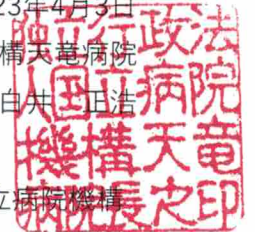 23年4月3日
構天竜病院
白井 正浩
立病院機構
独立行政法
人国立病院
機構天竜
病院長之印